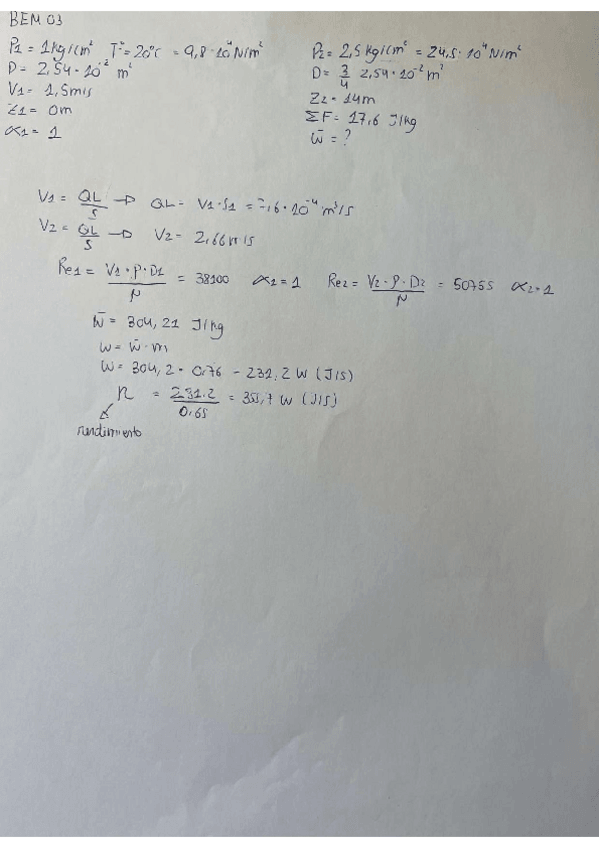 BEM 03
P1 = 1 kg/cm² Tª = 20ºC = 9,8·10⁴ N/m²
D = 2,54·10⁻² m²
V1 = 1,5 m/s
Z1 = 0m
α1 = 1
P2 = 2,5 kg/cm² = 24,5·10⁴ N/m²
D = 3/4 2,54·10⁻² m²
Z2 = 14m
ΣF = 17,6 J/kg
w̄ = ?
V1 = QL/S → QL = V1·S1 = 7,6·10⁻⁴ m³/s
V2 = QL/S → V2 = 2,66 m/s
Re1 = V1·ρ·D1/μ = 38100 α1 = 1 Re2 = V2·ρ·D2/μ = 50755 α2 = 1
w̄ = 304,21 J/kg
w = w̄·m
w = 304,2 · 0,76 = 231,2 W (J/s)
η = 231.2/0,65 = 355,7 W (J/s)
rendimiento